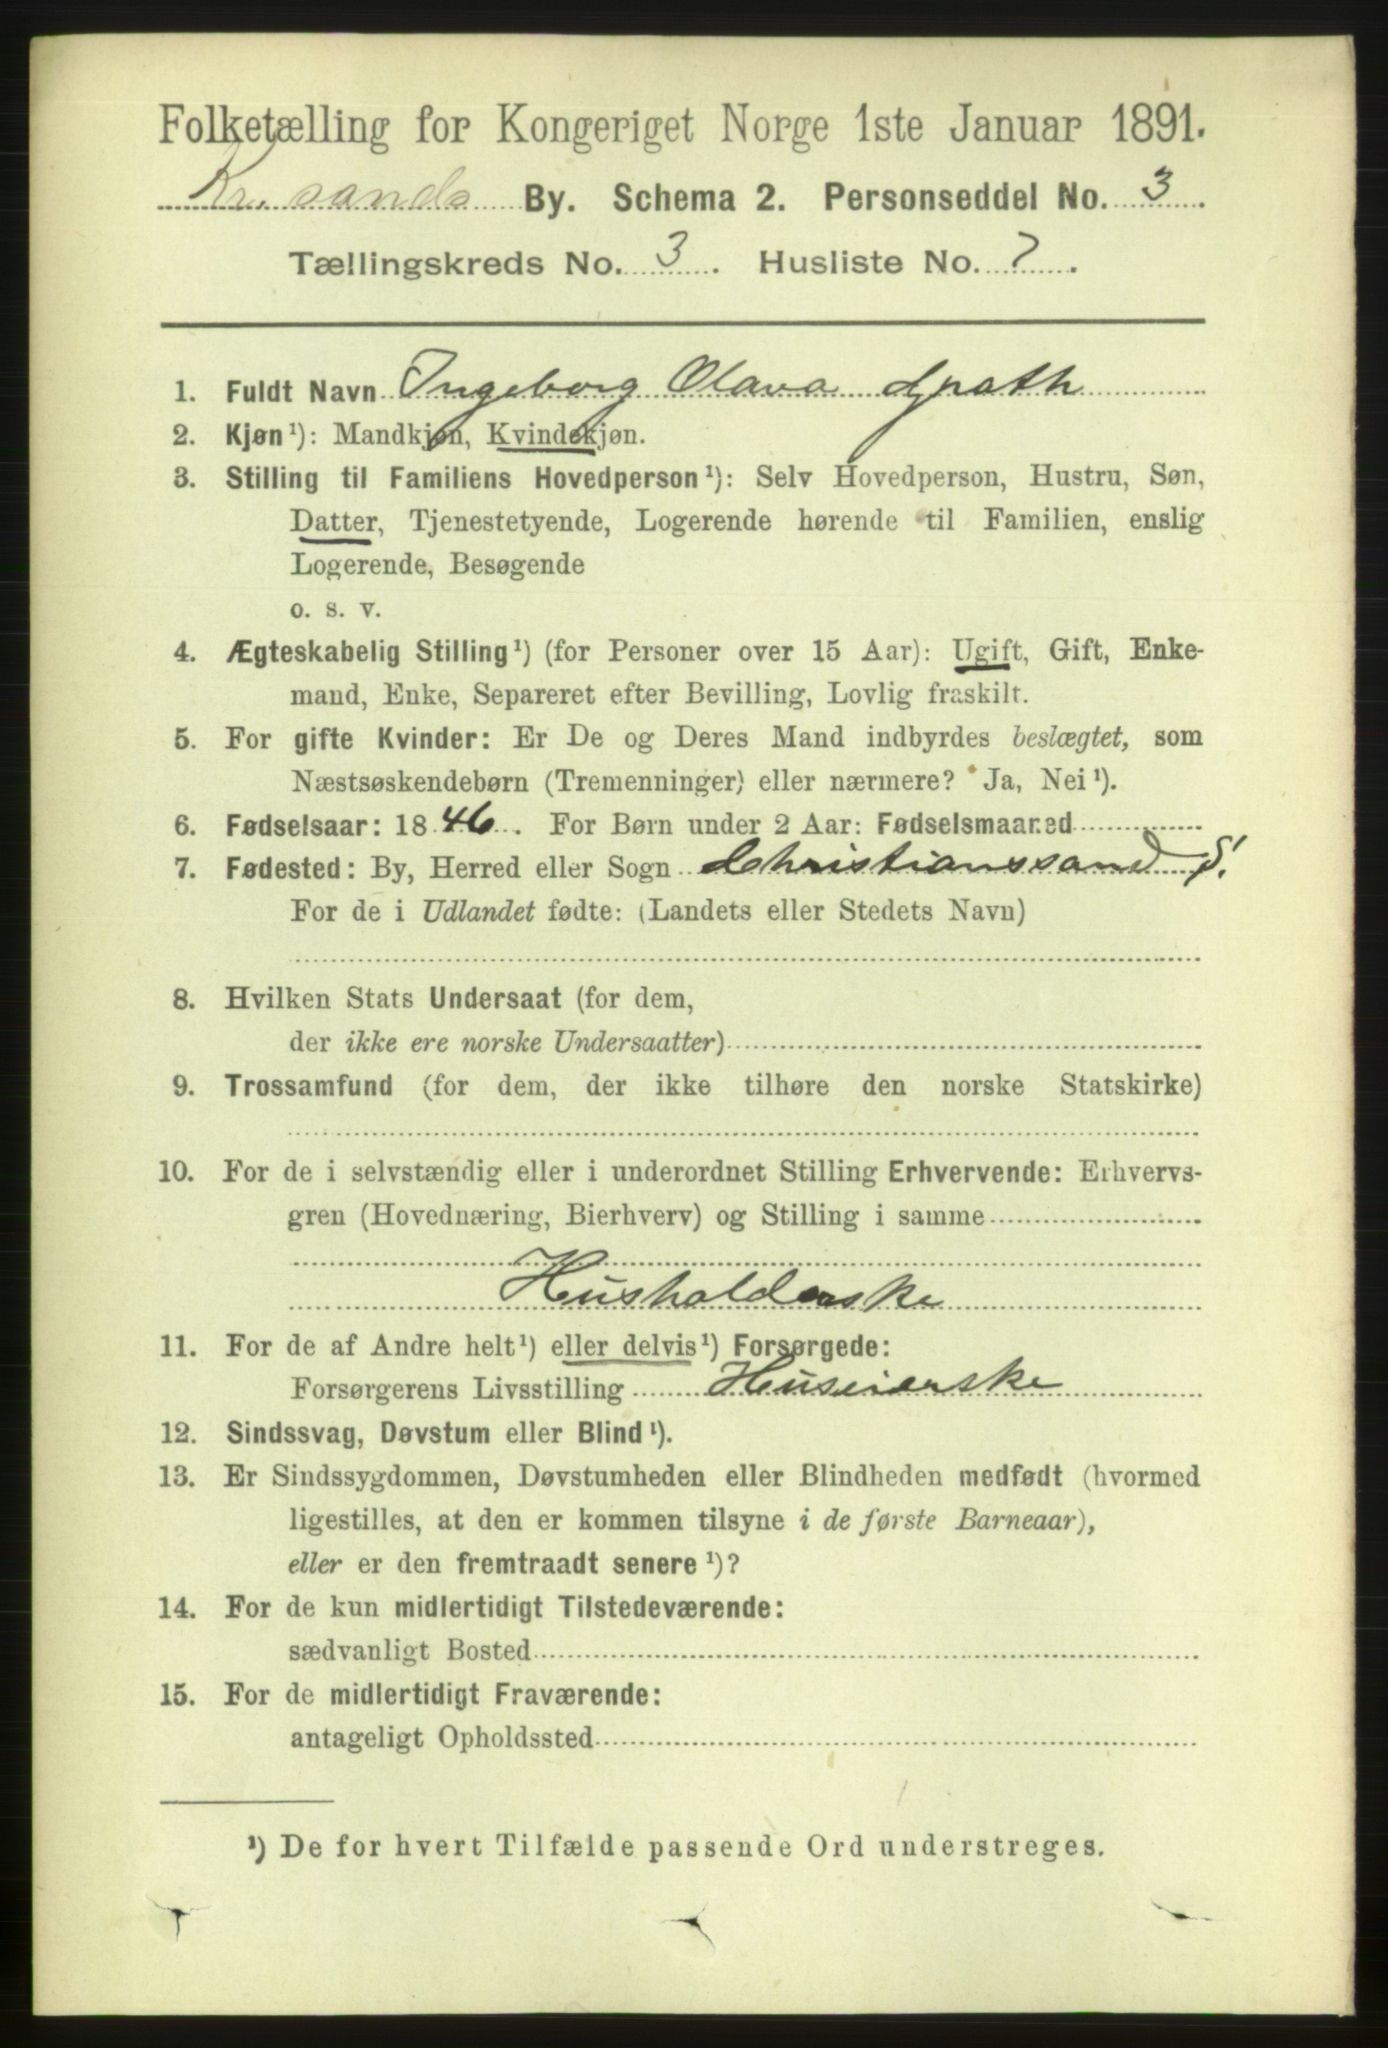 Folketælling for Kongeriget Norge 1ste Januar 1891.
Kr.sands By. Schema 2. Personseddel No. 3
Tællingskreds No. 3. Husliste No. 7.
1. Fuldt Navn Ingeborg Olava
2. Kjøn¹): Mandkjøn, Kvindekjøn.
3. Stilling til Familiens Hovedperson¹): Selv Hovedperson, Hustru, Søn,
Datter, Tjenestetyende, Logerende hørende til Familien, enslig
Logerende, Besøgende
o. s. v.
4. Ægteskabelig Stilling¹) (for Personer over 15 Aar): Ugift, Gift, Enke-
mand, Enke, Separeret efter Bevilling, Lovlig fraskilt.
5. For gifte Kvinder: Er De og Deres Mand indbyrdes beslægtet, som
Næstsøskendebørn (Tremenninger) eller nærmere? Ja, Nei¹).
6. Fødselsaar: 1846. For Børn under 2 Aar: Fødselsmaaned
7. Fødested: By, Herred eller Sogn Christianssand S.
For de i Udlandet fødte: (Landets eller Stedets Navn)
8. Hvilken Stats Undersaat (for dem,
der ikke ere norske Undersaatter)
9. Trossamfund (for dem, der ikke tilhøre den norske Statskirke)
10. For de i selvstændig eller i underordnet Stilling Erhvervende: Erhvervs-
gren (Hovednæring, Bierhverv) og Stilling i samme
Husholderske
11. For de af Andre helt¹) eller delvis¹) Forsørgede:
Forsørgerens Livsstilling Huseierske
12. Sindssvag, Døvstum eller Blind¹).
13. Er Sindssygdommen, Døvstumheden eller Blindheden medfødt (hvormed
ligestilles, at den er kommen tilsyne i de første Barneaar),
eller er den fremtraadt senere¹)?
14. For de kun midlertidigt Tilstedeværende:
sædvanligt Bosted
15. For de midlertidigt Fraværende:
antageligt Opholdssted
¹) De for hvert Tilfælde passende Ord understreges.